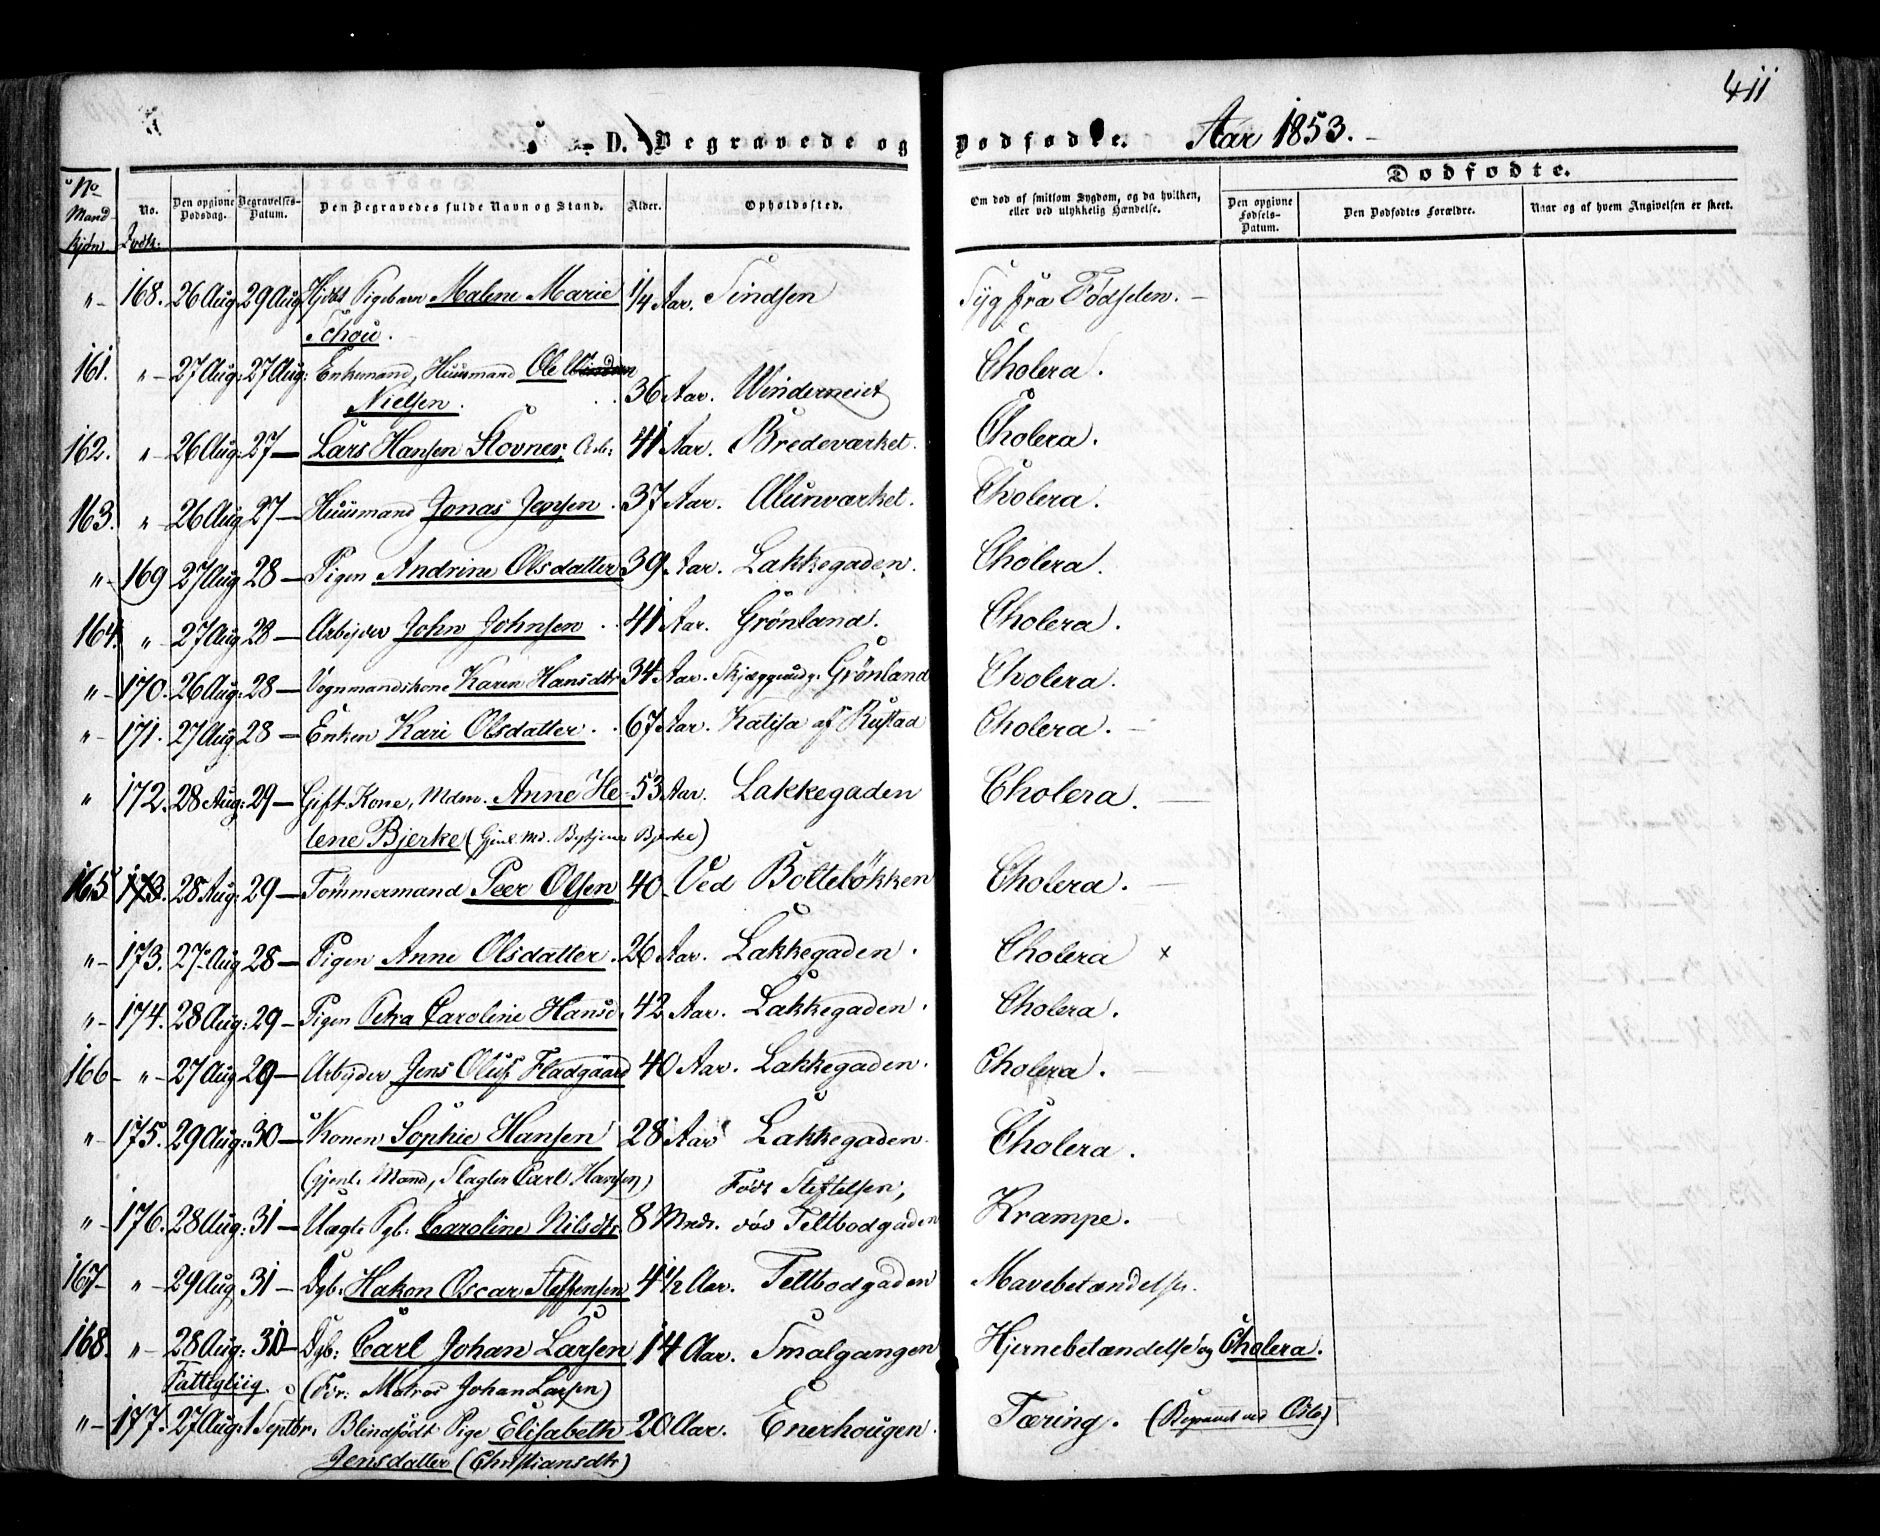 411
D. Begravede og Dødfødte. Aar 1853.
Dødfødte.
No Mandkjøn
No. Qvdk:
Den opgivne Dødsdag.
Begravelses-Datum.
Den Begravedes fulde Navn og Stand.
Alder.
Opholdssted.
Om død af smitsom Sygdom, og da hvilken, eller ved ulykkelig Hændelse.
Den opgivne Fødsels-Datum.
Den Dødfødtes Forældre.
Naar og af hvem Angivelsen er skeet.
"- 168. 26 Aug. 29 Aug. Pigebarn Malene Marie 1/4 Aar. Tindsen Syg fra Fødselen.
Schou.
161. "- 27 Aug: 27 Aug: Enkemand, Huusmand Ole 36 Aar. Winderneiet Cholera.
Nielsen.
162. "- 26 Aug: 27 — Lars Hansen Stovner, Arb: 41 Aar. Bredeværket. Cholera.
163. " 26 Aug 27 — Huusmand Jonas Jensen. 37 Aar. Alunværket. Cholera.
"- 169 27 Aug 28 — Pigen Andrine Olsdatter 39 Aar. Lakkegaden. Cholera.
164. "- 27 Aug 28 — Arbejder John Johnsen 41 Aar. Grönland. Cholera.
"- 170. 26 Aug: 28 — Vognmandskone Karen Hansdtr 34 Aar. Grönland Cholera.
"- 171. 27 Aug 28 — Enken Kari Olsdatter 67 Aar. af Rustad Cholera.
" 172. 28 Aug: 29 — Gift Kone, Mdm. Anne He- 53 Aar. Lakkegaden Cholera.
lene Bjerke (Gjenl. Md. Bjerke)
165 173. 28 Aug: 29 — Tömmermand Peer Olsen 40 Ved Bolteløkken Cholera.
"- 173. 27 Aug 28 — Pigen Anne Olsdatter. 26 Aar. Lakkegaden. Cholera x
"- 174. 28 Aug: 29 — Pigen Petra Caroline Hansd. 42 Aar. Lakkegaden. Cholera.
166 "- 27 Aug 29 — Arbejder Jens Oluf Fladgaard 40 Aar. Lakkegaden. Cholera.
"- 175. 29 Aug: 30 — Konen Sophie Hansen 28 Aar Lakkegaden. Cholera.
(gjenl. Mand, Slagter Carl Hansen) Föds Stiftelsen,
"- 176. 28 Aug: 31 — Uægte Pgb: Caroline Nilsdtr. 8 Mndr. Teltbodgaden Krampe.
167 "- 29 Aug 31 — Dgb: Hakon Oscar Steffensen 4 1/2 Aar. Teltbodgaden Mavebetændelse.
168. "- 28 Aug: 31 — Dgb: Carl Johan Larsen 14 Aar. Smalgangen Hjernebetændelse og Cholera.
Fattigliig. (For: Matros Johan Larsen)
"- 177. 27 Aug: 1 Septbr. Blindfödt Pige Elisabeth 20 Aar. Enerhougen. Tæring.
Jensdatter (Christiansdtr)